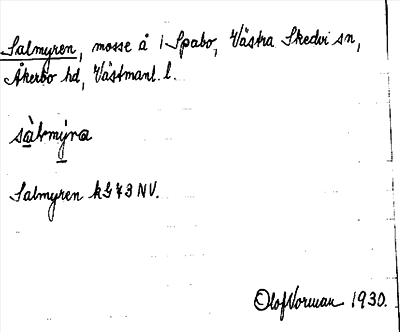 Salmyren, mosse å Spabo, Västra Skedvi sn,
Åkerbo hd, Västmanl. l.
Salmyren kG73NV.
Olof Norman 1930.